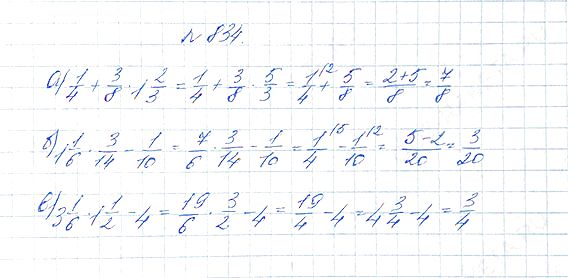 № 834.
а) 1/4 + 3/8 · 1 2/3 = 1/4 + 3/8 · 5/3 = 1/4^(12) + 5/8 = (2+5)/8 = 7/8
б) 1 1/6 · 3/14 − 1/10 = 7/6 · 3/14 − 1/10 = 1/4^(15) − 1/10^(12) = (5−2)/20 = 3/20
в) 3 1/6 · 1 1/2 − 4 = 19/6 · 3/2 − 4 = 19/4 − 4 = 4 3/4 − 4 = 3/4